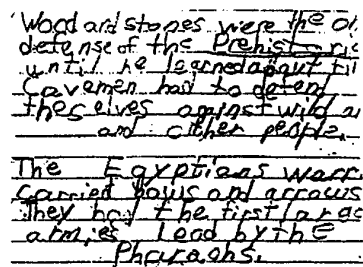 Wood and stones were the
defense of the Prehistoric
until he learned about
Cavemen had to defend
theselves against wild
and other people.
The Egyptians
carried bows and arrows
They had the first
armies lead by the
Pharaohs.